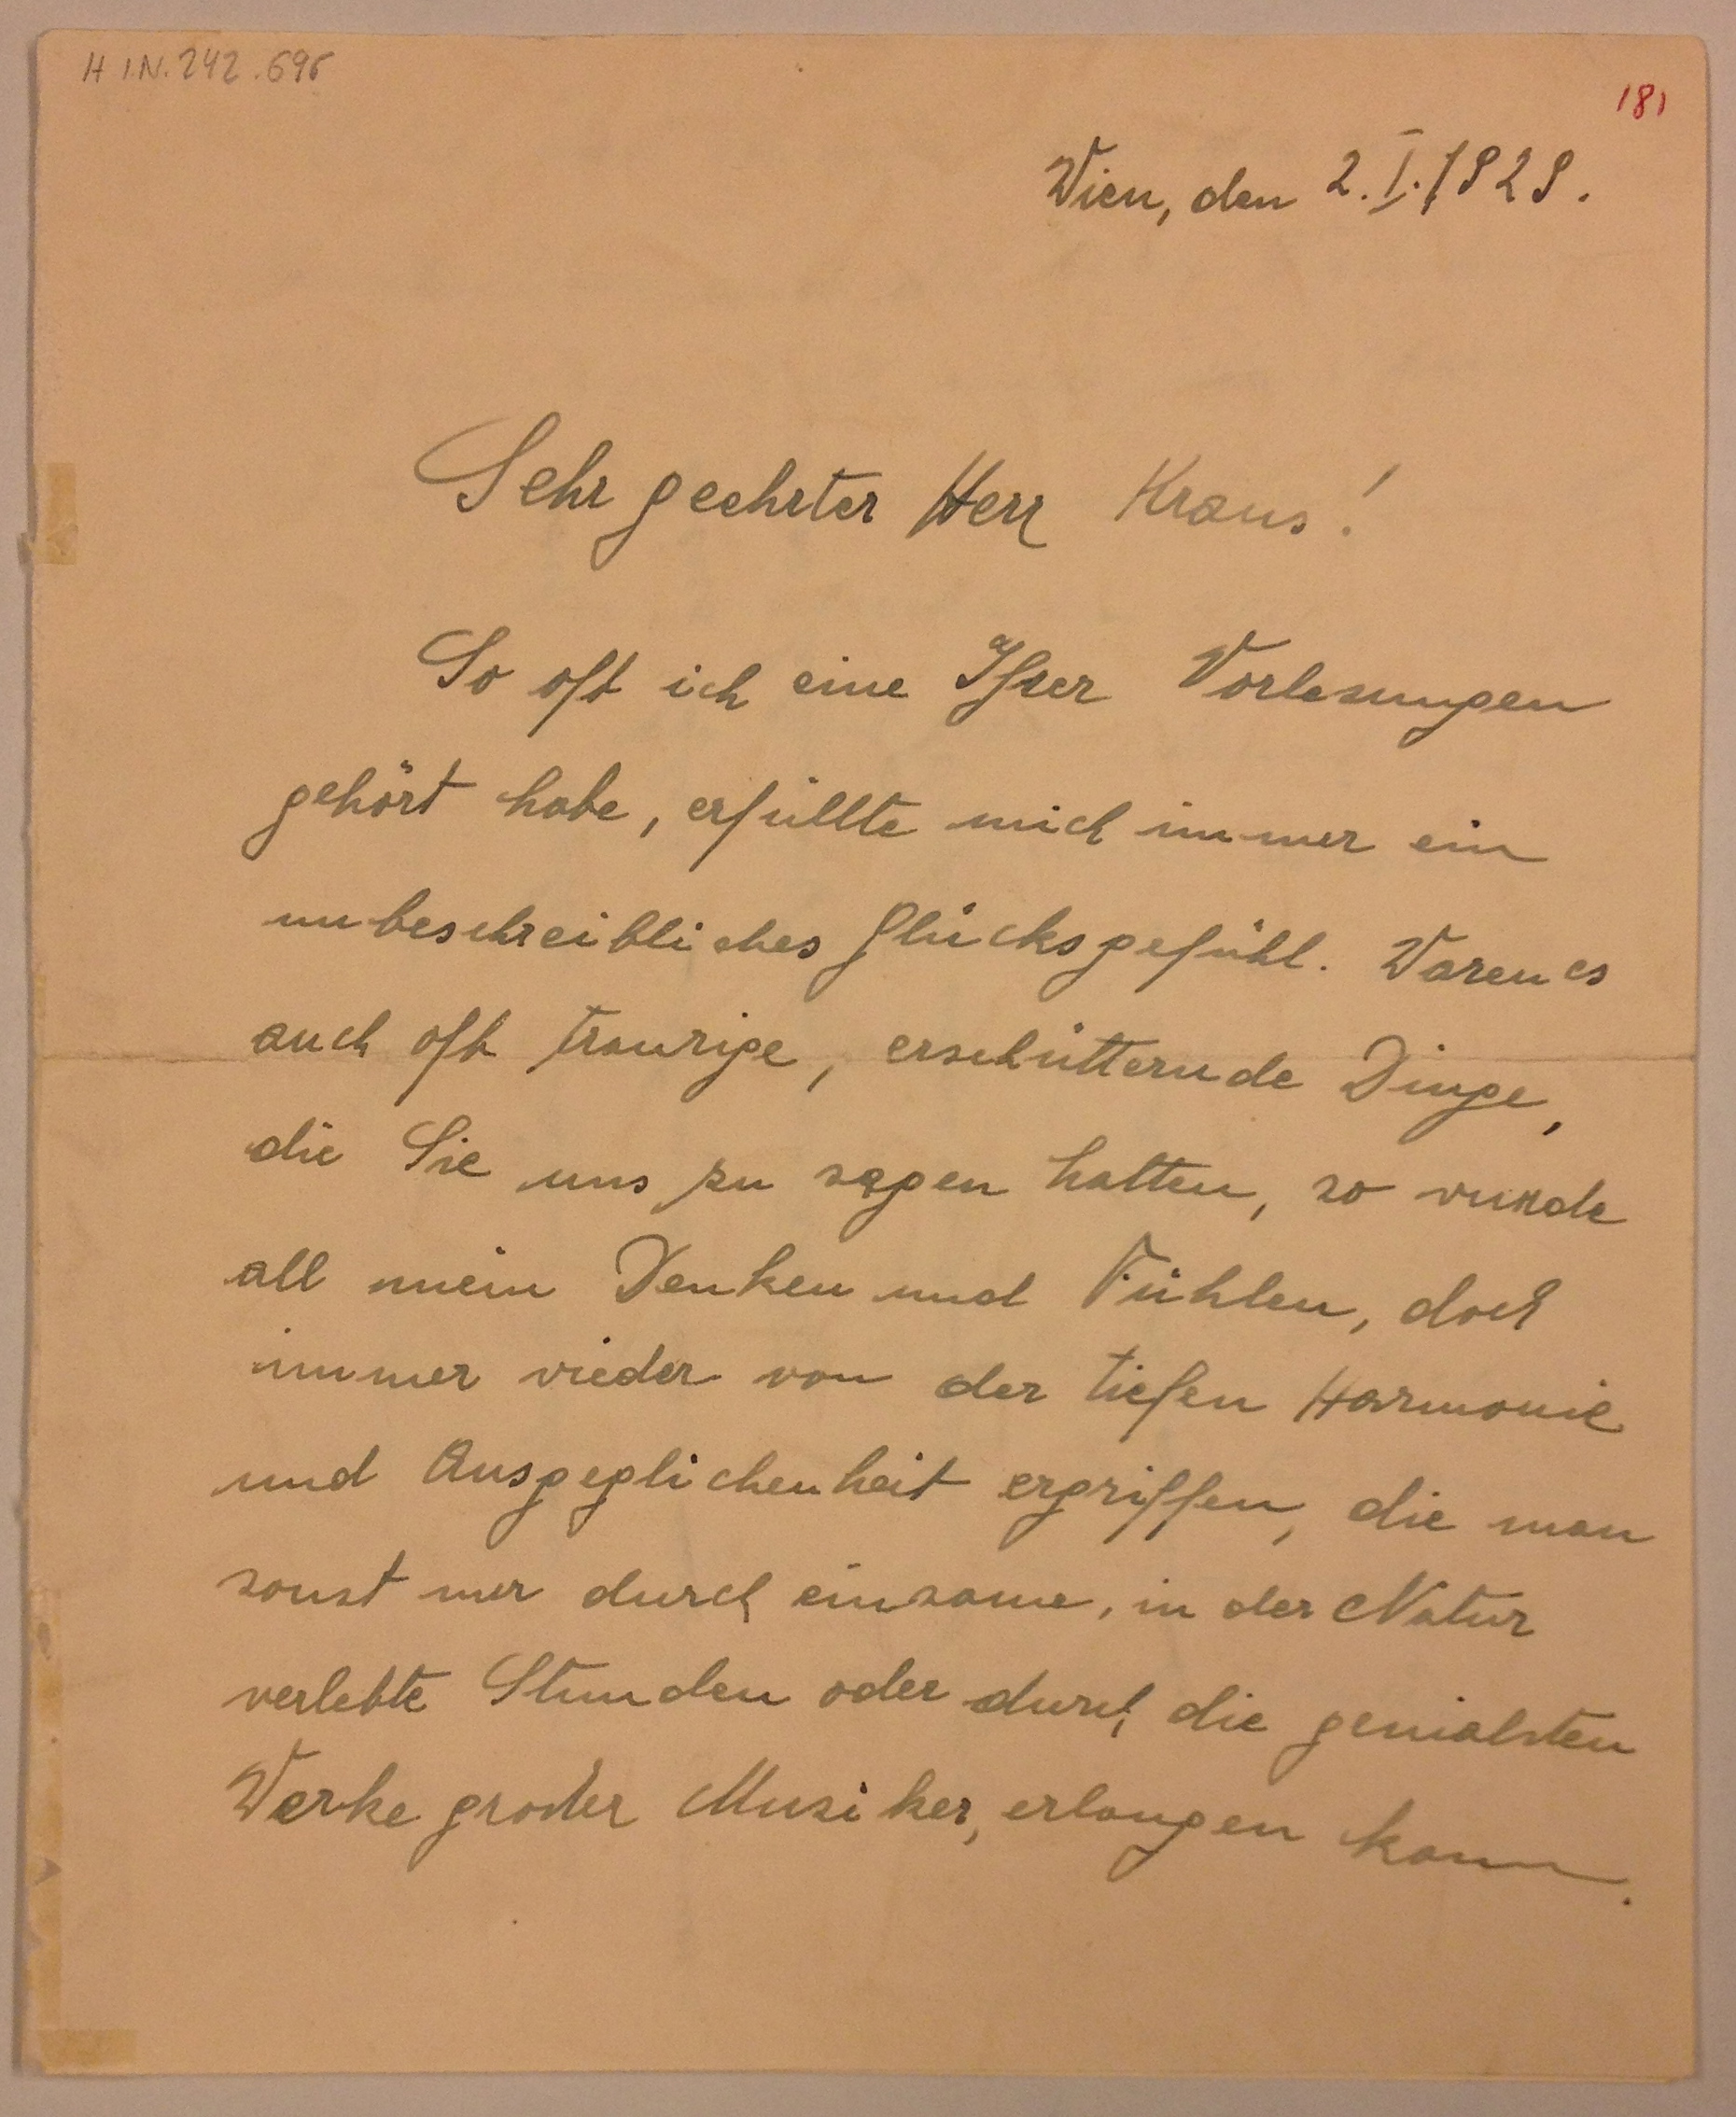 H I.N. 242.696
181
Wien, den 2.I.1929.
Sehr geehrter Herr Kraus!
So oft ich eine Ihrer Vorlesungen
gehört habe, erfüllte mich immer ein
unbeschreibliches Glücksgefühl. Waren es
auch oft traurige, erschütternde Dinge,
die Sie uns zu sagen hatten, so wurde
all mein Denken und Fühlen, doch
immer wieder von der tiefen Harmonie
und Ausgeglichenheit ergriffen, die man
sonst nur durch einsame, in der Natur
verlebte Stunden oder durch die genialsten
Werke großer Musiker, erlangen kann.